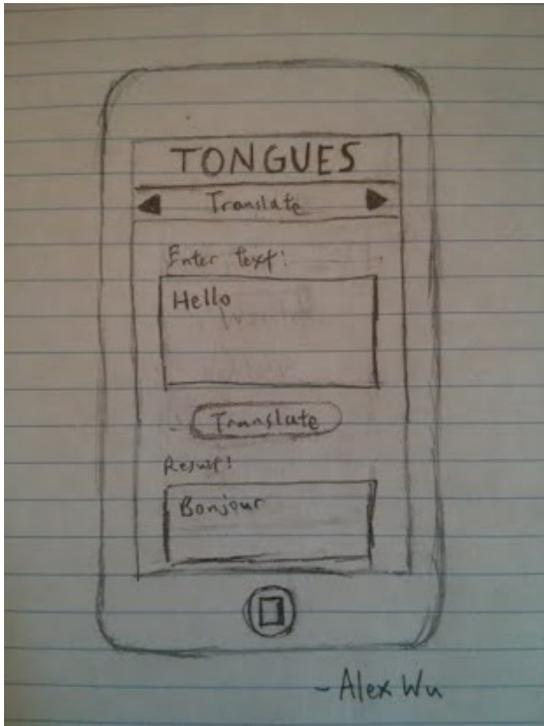 TONGUES
Translate
Enter text:
Hello
Translate
Result:
Bonjour
- Alex Wu